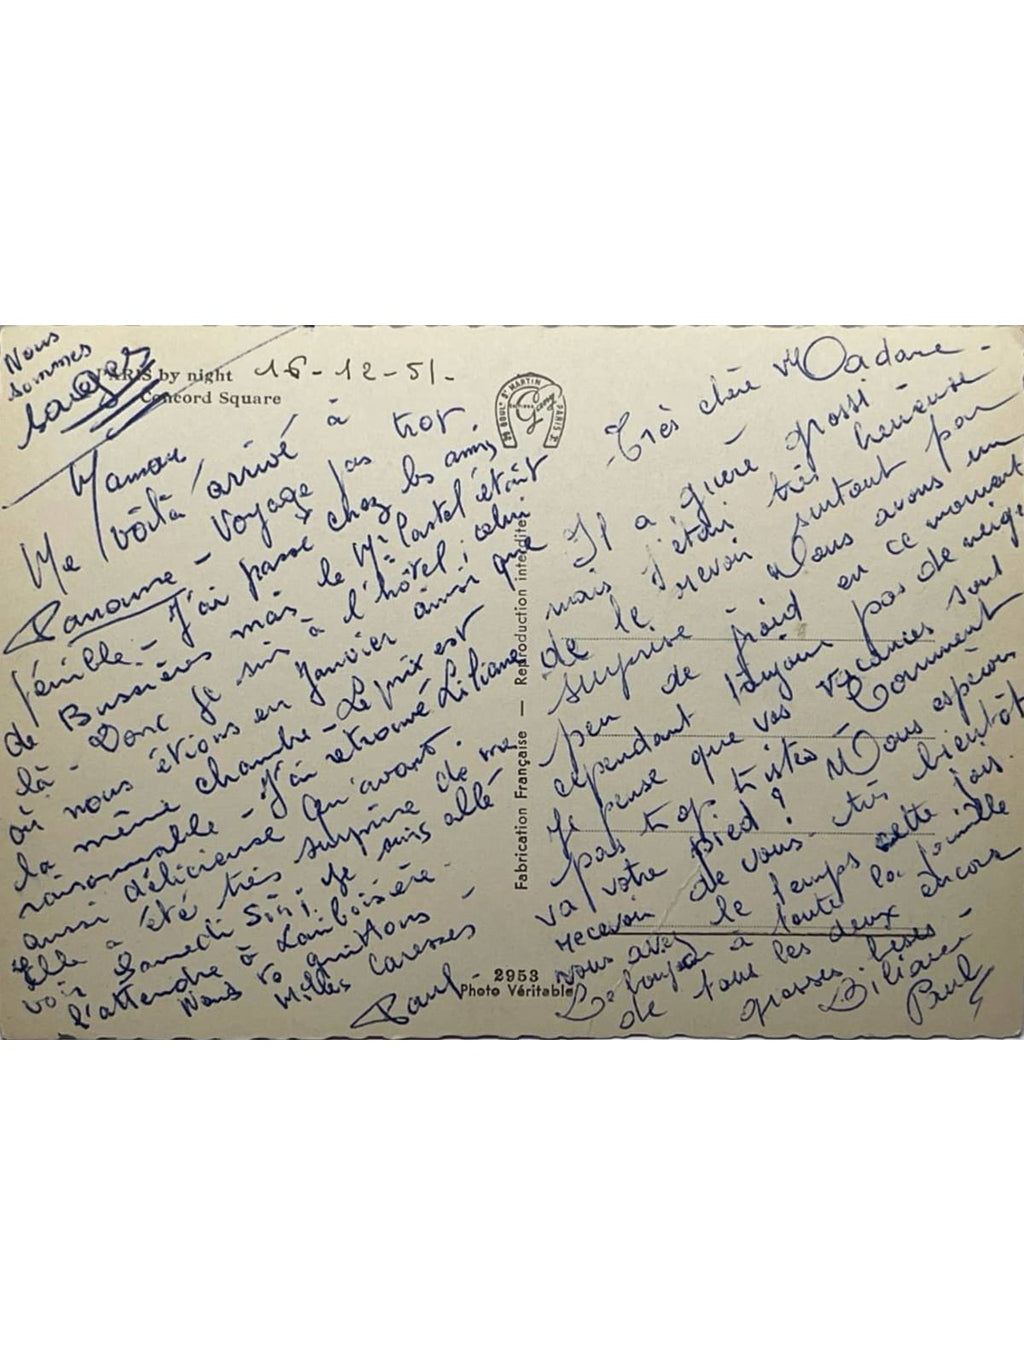 Nous
sommes
sages
PARIS by night
Concord Square
16-12-51.
Maman
Me voilà arrivé à
Paname - Voyage pas trop
pénible - J'ai passé chez les amis
de Bussières mais le Mr Castel était
là - Donc je suis à l'hôtel, celui
où nous étions en Janvier ainsi que
la même chambre - Le prix est
raisonnable - J'ai retrouvé Liliane
aussi délicieuse qu'avant.
Elle a été très surprise de me
voir Samedi Si si je suis allé
l'attendre à Lariboisière.
Nous quittons -
Milles caresses -
Paul -
39 BOULT ST MARTIN
PARIS 3e
Fabrication Française — Reproduction interdite
2953
Photo Véritable
Très chère Madame -
Il a guère grossi
mais j'étais très heureuse
de le revoir surtout par
surprise Nous avons un
peu de froid en ce moment
cependant toujours pas de neige
Je pense que vos vacances sont
pas trop tristes - Comment
va votre pied ? Nous espérons
recevoir de vous très bientôt
vous avez le temps cette fois.
Le bonjour à toute la famille
de tous les deux encore
grosses bises -
Liliane
Paul